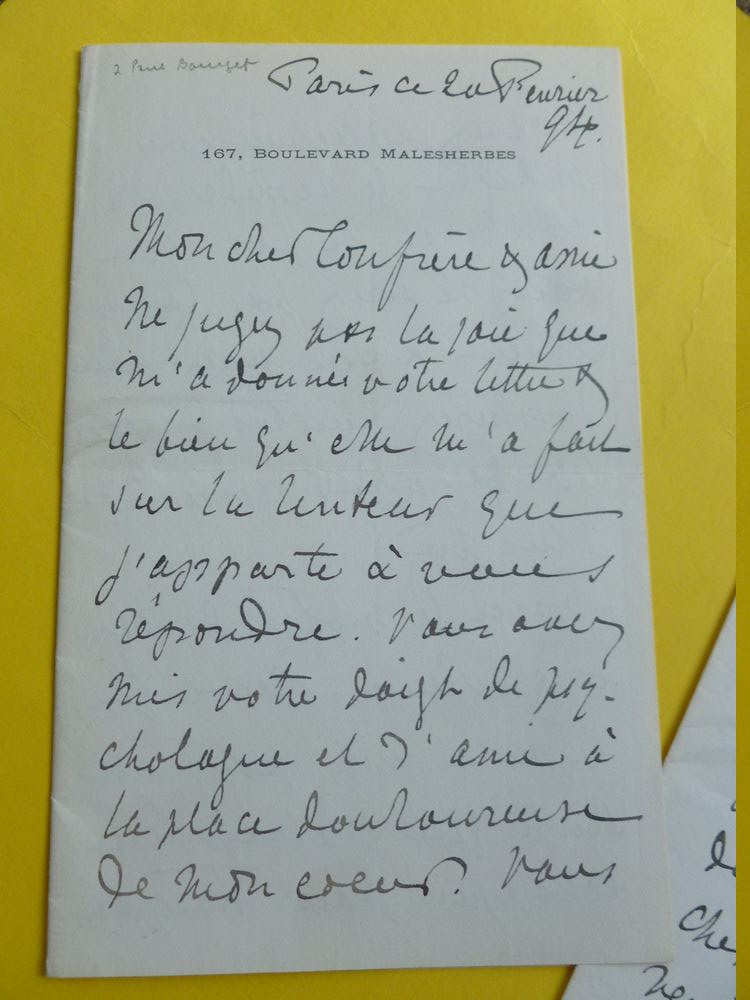 à Paul Bourget
Paris ce 20 Fevrier
94.
167, BOULEVARD MALESHERBES
Mon cher Confrère & amie
Ne jugez pas la joie que
m'a donnée votre lettre &
le bien qu'elle m'a fait
sur la lenteur que
j'apporte à vous
répondre. Vous avez
mis votre doigt de psy-
chologue et d'amie à
la place douloureuse
de mon coeur. Vous
de
che